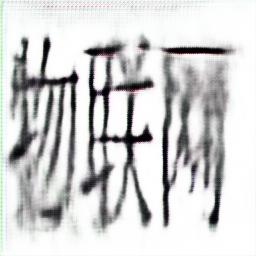 物联网